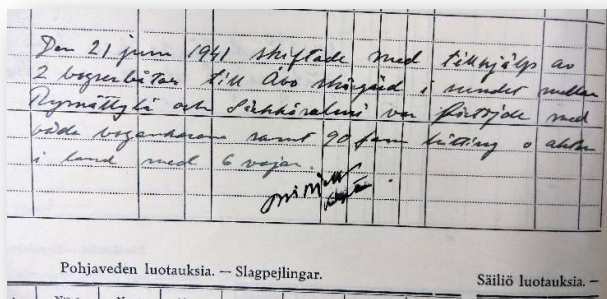 Den 21 juni 1941 skiftade med tillhjälp av
2 bogserbåtar till Åbo skärgård i sundet mellan
Rymättylä och var förtöjde med
båda bogankarena samt 90 famn kätting o akter
i land med 6 vajar.
Pohjaveden luotauksia. — Slagpejlingar.
Säiliö luotauksia. —